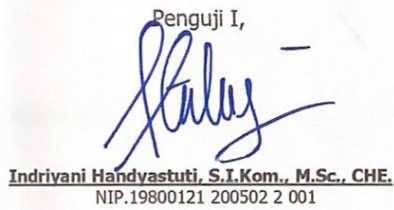 Penguji I,
Indriyani Handyastuti, S.I.Kom., M.Sc., CHE.
NIP.19800121 200502 2 001